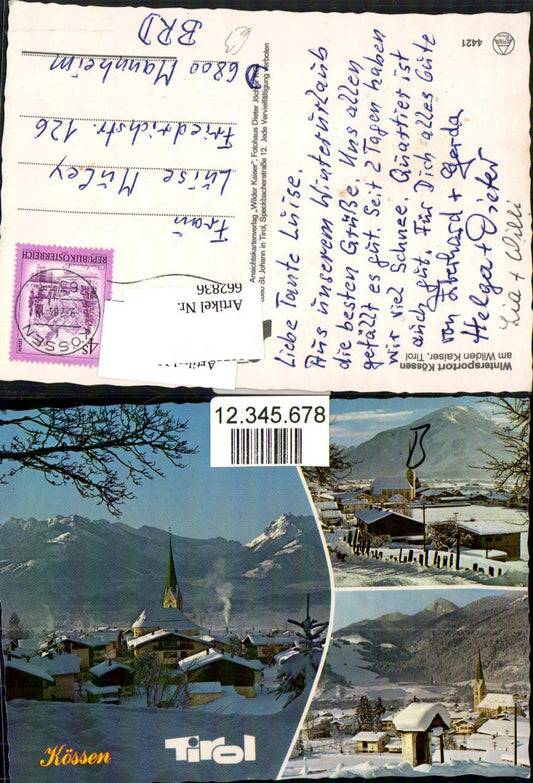 Liebe Tante Luise.
Aus unserem Winterurlaub
die besten Grüße. Uns allen
gefällt es gut. Seit 2 Tagen haben
wir viel Schnee. Quartier ist
auch gut. Für Dich alles Gute
von Eberhard + Gerda
Helga + Dieter
Lia + Willi
Wintersportort Kössen
am Wilden Kaiser, Tirol
4421
Ansichtskartenverlag „Wilder Kaiser", Fotohaus Dieter Jöchler KG
St. Johann in Tirol, Speckbacherstraße 12. Jede Vervielfältigung verboten
REPUBLIK ÖSTERREICH
4S
KÖSSEN
Frau
Luise Müley
Friedrichstr. 126
6800 Mannheim
BRD
Artikel Nr.
662836
12.345.678
Kössen
Tirol